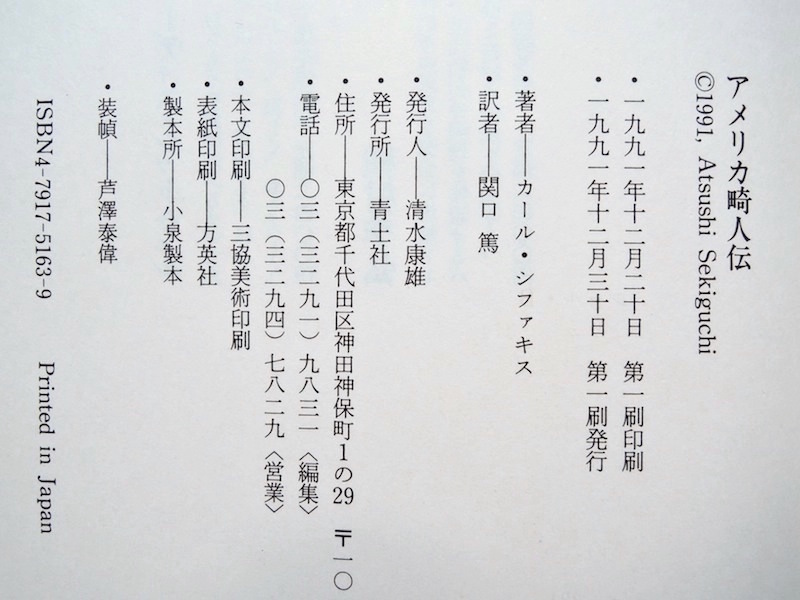 アメリカ畸人伝
©1991, Atsushi Sekiguchi
・一九九一年十二月二十日　第一刷印刷
・一九九一年十二月三十日　第一刷発行
・著者——カール・シファキス
・訳者——関口 篤
・発行人——清水康雄
・発行所——青土社
・住所——東京都千代田区神田神保町1の29　〒一〇
・電話——〇三（三二九一）九八三一〈編集〉
〇三（三二九四）七八二九〈営業〉
・本文印刷——三協美術印刷
・表紙印刷——方英社
・製本所——小泉製本
・装幀——芦澤泰偉
ISBN4-7917-5163-9　Printed in Japan